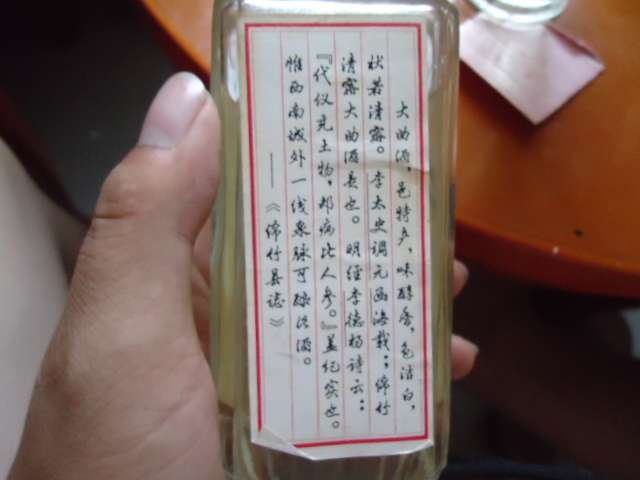 大曲酒,邑特产,味醇香,色洁白,
状若清露。李太史调元函海载;绵竹
清露大曲酒是也。明经李德扬诗云:
『代仪充土物,却病比人参。』盖纪实也。
惟西南城外一线泉脉可酿此酒。
——《绵竹县誌》